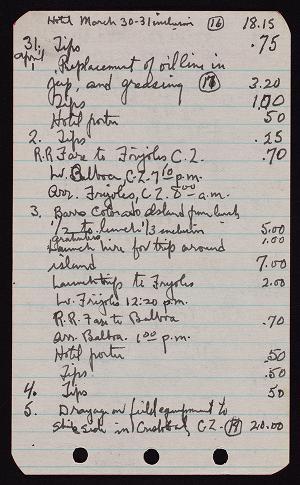 Hotel March 30-31 inclusive (16) 18.15
31. Tips .75
April
1. Replacement of oil line in
jeep, and greasing (17) 3.20
Tips 1.00
Hotel porter 50
2. Tips .25
R.R. Fare to Frijoles C.Z. .70
Lv. Balboa, C.Z. 7 10 p.m.
Arr. Frijoles, C.Z. 8 00 a.m.
3. Barro Colorado Island from lunch
1/2 to lunch 1/3 inclusive 5.00
gratuities 1.00
Launch hire for trip around
island 7.00
Launch trip to Frijoles 2.00
Lv. Frijoles 12:20 p.m.
R.R. Fare to Balboa .70
Arr. Balboa. 1 00 p.m.
Hotel porter .50
Tips .50
4. Tips 50
5. Drayage on field equipment to
ship side in Cristobal, C.Z. (18) 20.00